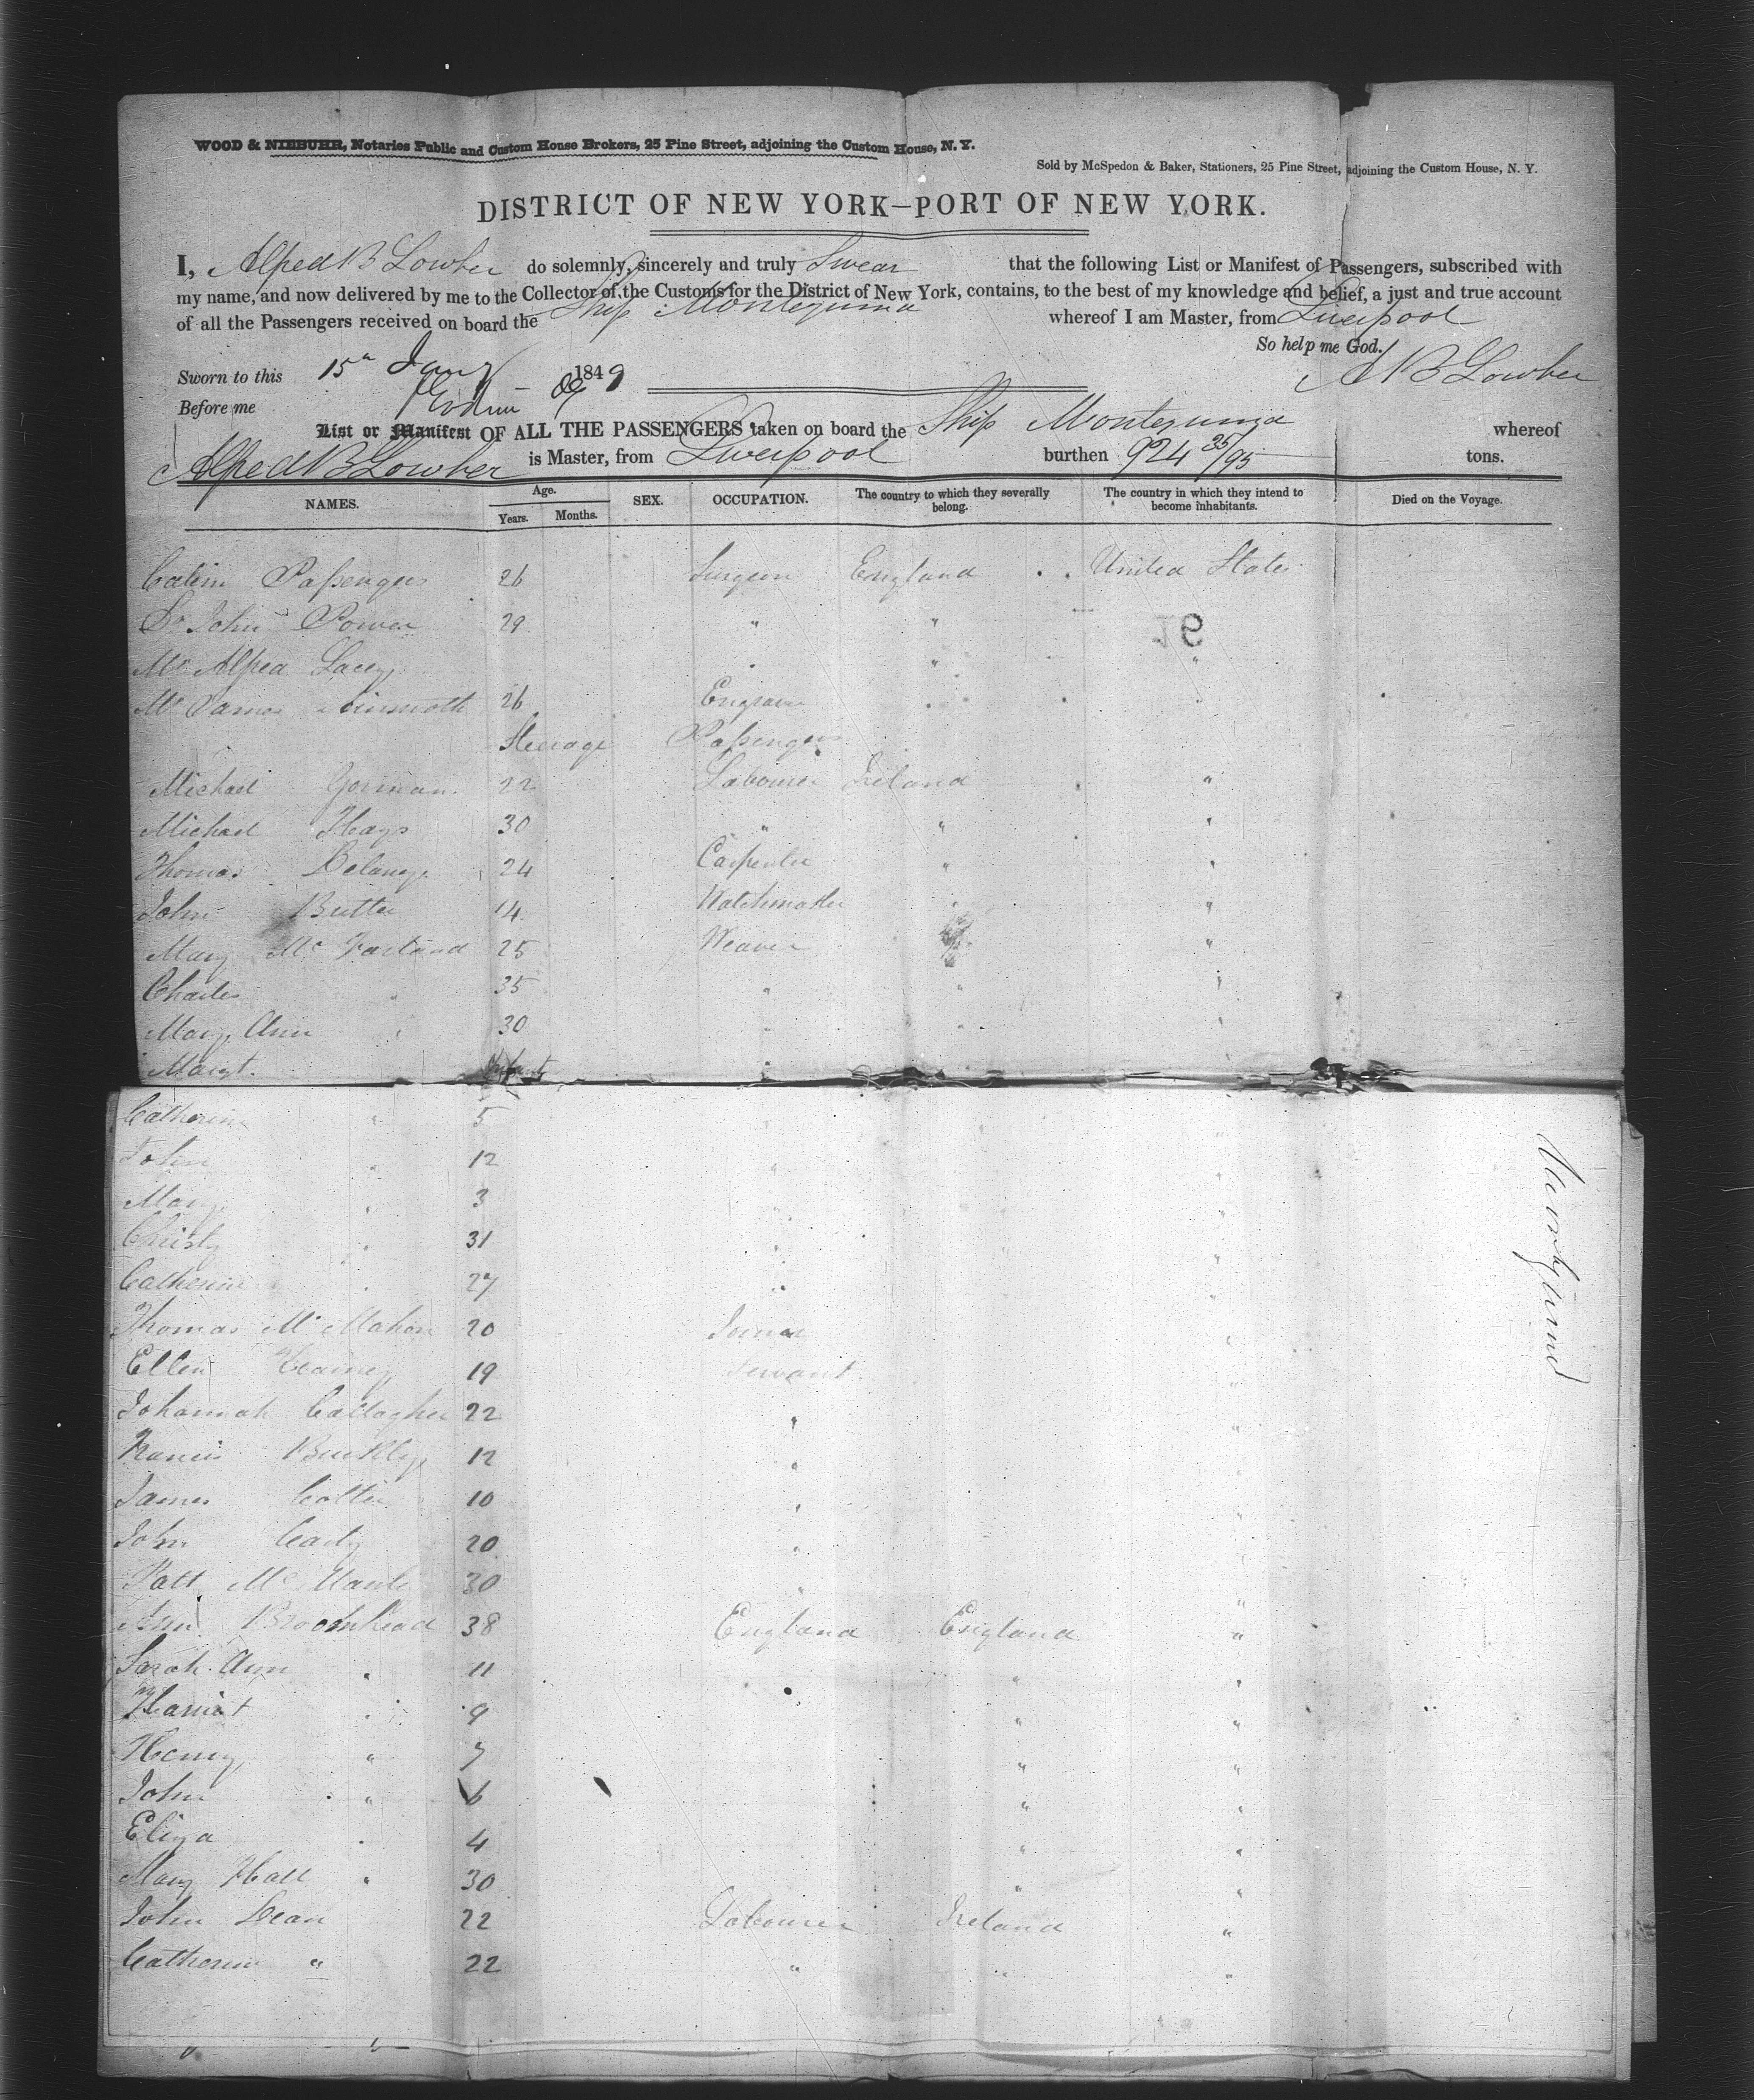 WOOD & NIEBUHR, Notaries Public and Custom House Brokers, 25 Pine Street, adjoining the Custom House, N. Y.
Sold by McSpedon & Baker, Stationers, 25 Pine Street, adjoining the Custom House, N. Y.
DISTRICT OF NEW YORK—PORT OF NEW YORK.
I, Alfred B Lowber do solemnly, sincerely and truly Swear that the following List or Manifest of Passengers, subscribed with
my name, and now delivered by me to the Collector of the Customs for the District of New York, contains, to the best of my knowledge and belief, a just and true account
of all the Passengers received on board the Ship Montezuma whereof I am Master, from Liverpool
So help me God.
Sworn to this 15th Jany 1849 A B Lowber
Before me
List or Manifest OF ALL THE PASSENGERS taken on board the Ship Montezuma whereof
Alfred B Lowber is Master, from Liverpool burthen 924 35/95 tons.
NAMES. Age. Years. Months. SEX. OCCUPATION. The country to which they severally belong. The country in which they intend to become inhabitants. Died on the Voyage.
Cabin Passengers 26 Surgeon England United States
Dr John Power 29 " "
Mr Alfred Lacey " " "
Mr James 26 Engraver " "
Steerage Passengers
Michael Gorman 22 Labourer Ireland "
Michael Hays 30 " " "
Thomas Delany 24 Carpenter " "
John Butter 14 Watchmaker " "
Mary Mc Farland 25 Weaver "
Charles " 35 " " "
Mary Ann " 30 " " "
Margt. Infant " "
Catherine " 5 "
John " 12 " "
Mary " 3 " "
Christy " 31 " "
Catherine " 27 " "
Thomas Mc Mahon 20 "
Ellen 19 Servant "
Johannah Gallagher 22 " "
Francis Buckley 12 " "
James 10 " "
John Carty 20 " "
Patt Mc 30 " "
Ann Broomhead 38 England England "
Sarah Ann " 11 " "
Harriet " 9 " "
Henry " 7 " "
John " 6 " "
Eliza " 4 " "
Mary Hall " 30 " "
John Dean 22 Labourer Ireland "
Catherine " 22 " " "